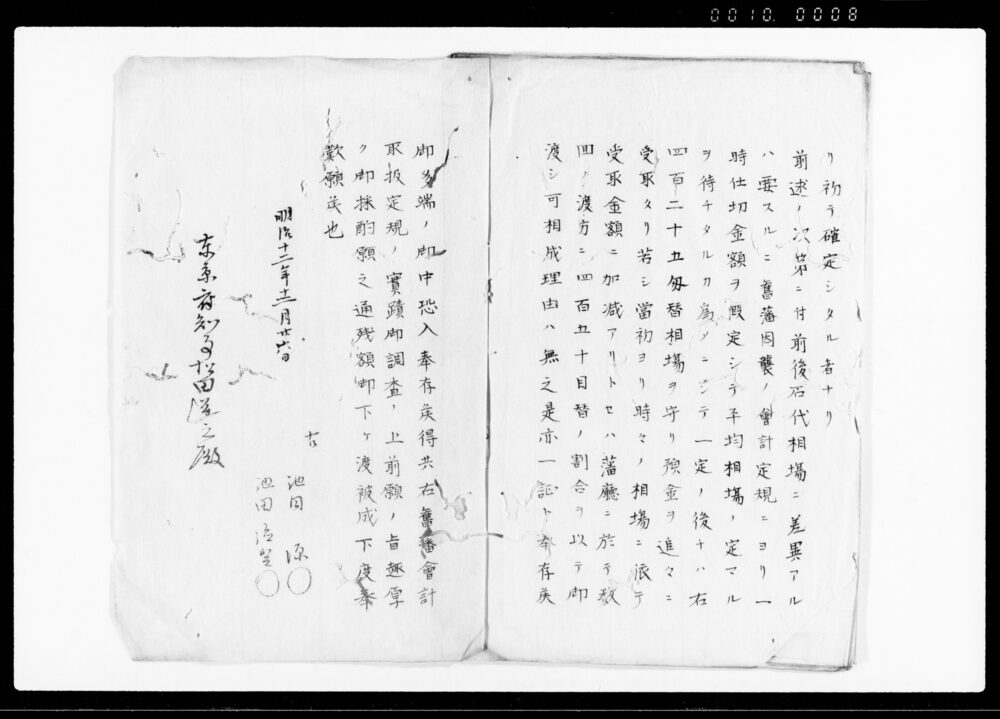 0010 0008
リ初テ確定シタル者ナリ
前述ノ次第ニ付前後石代相場ニ差異アル
ハ要スルニ舊藩因襲ノ會計定規ニヨリ一
時仕切金額ヲ假定シテ平均相場ノ定マル
ヲ待チタルカ為メニシテ一定ノ後ナハ右
四百二十五匁替相場ヲ守リ預金ヲ進々ニ
受取タリ若シ當初ヨリ時々ノ相場ニ依テ
受取金額ニ加減アリトセハ藩廳ニ於テ敎
四ノ渡方ニ四百五十目替ノ割合ヲ以テ御
渡シ可相成理由ハ無之是亦一証ト奉存候
御多端ノ御中恐入奉存候得共右舊藩會計
取扱定規ノ實蹟御調査ノ上前願ノ旨趣厚
ク御採酌願之通残額御下ケ渡被成下度奉
歎願候也
明治十二年十二月廿六日
右
池田 源
池田
東京府知事松田道之殿